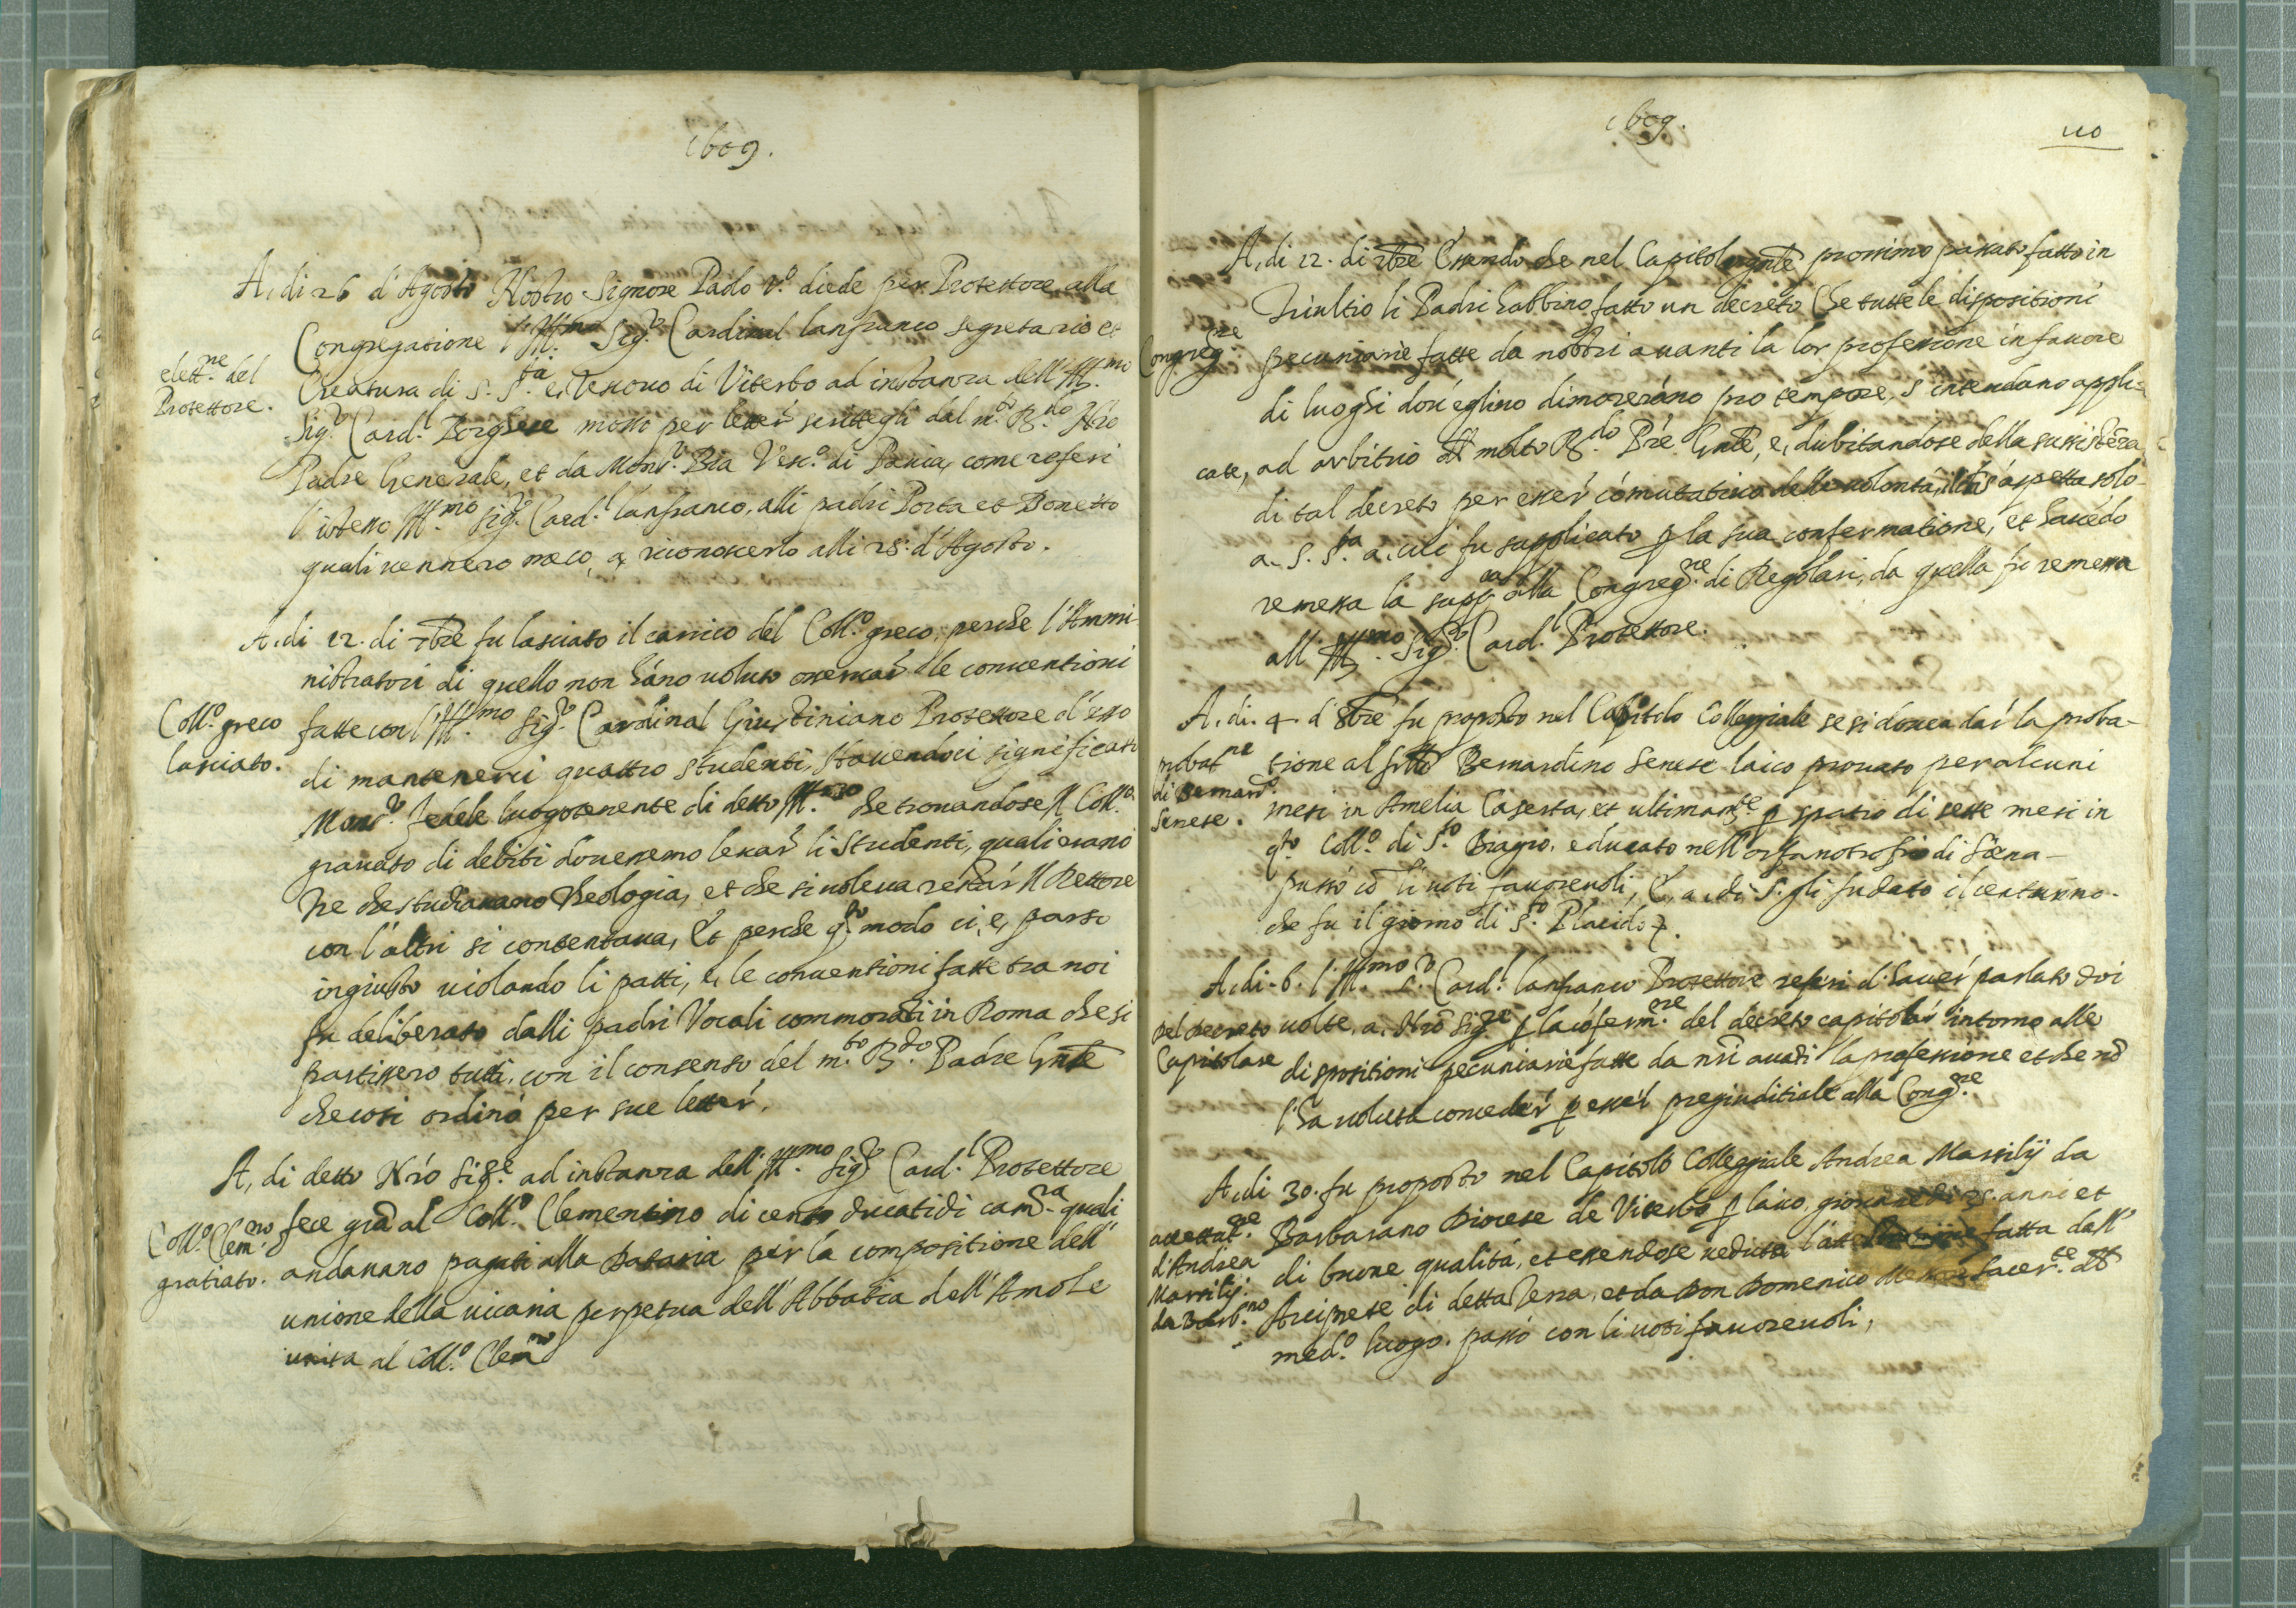 1609.
A, di 26 d'Agosto Nostro Signore Paolo V.º diede per Protettore alla
Congregatione l'Ill.mo Sig.r Cardinal lanfranco segretario et
elett.ne del
Protettore.
Creatura di S. S.ta e, Vescovo di Viterbo ad instanza dell'Ill.mo
Sig.r Card.l Borghese mosso per letter scrittegli dal m.to R.do Nro
Padre Generale, et da Mons.r Bia Vesc.o di Pavia, come referi
l'istesso Ill.mo Sig.r Card.l lanfranco, alli padri Porta et Bonetto
quali vennero meco, a, riconoscerlo alli 28. d'Agosto.
A, di 12. di 7bre fu lasciato il carrico del Coll.o greco, perche l'Ammi-
nistratori di quello non háno voluto osservar le conventioni
Coll.o greco
lasciato.
fatte con l'Ill.mo Sig.r Cardinal Giustiniano Protettore d'esso
di mantenerci quattro studenti, havendoci significato
Mons.r Fedele luogotenente di detto Ill.mo che trovandose Il Coll.o
gravato di debiti dovessemo levar li studenti, quali erano
tre che studiavano Theologia, et che si voleva restar Il Rettore
con l'altri si contentava, Et perche q.to modo ci, e, parso
ingiusto violando li patti, e, le conventioni fatte tra noi
fu deliberato dalli padri Vocali commorati in Roma che si
partissero tutti, con il consenso del m.to R.do Padre Gnle
che cosi ordinò per sue letter.
A, di detto Nro Sig.e ad instanza dell'Ill.mo Sig.r Card.l Protettore
Coll.o Clem.no
gratiato.
fece gra al Coll.o Clementino di cento ducati di cam.ra quali
andavano pagati alla Dataria per la compositione dell'
unione della vicaria perpetua dell'Abbatia dell'Amole
unita al Coll.o Clem.no
1609.
110
A, di 12. di 7bre Essendo che nel Capitolo gnle prossimo passato fatto in
Triultio li Padri habbino fatto un decreto Che tutte le dispositioni
Congreg.ne
pecuniarie fatte da nostri avanti la lor professione in favore
di luoghi dov'eglino dimoreráno pro tempore, s'intendano appli-
cate, ad arbitrio del molto R.do Pre Gnle, e, dubitandose della sussisteza
di tal decreto per esser comutativo delle volontà, il che aspetta solo
a, S. S.ta a, cui fu supplicato p la sua confermatione, et havedo
remessa la supp.ca alla Congreg.ne di Regolari, da quella fu remessa
all Ill.mo Sig.r Card.l Protettore.
A, di. 4. d'8bre fu proposto nel Capitolo Collegiale se si dovea dar la proba-
probat.ne
di Bernard.o
Senese.
tione al frllo Bernardino Senese laico provato per alcuni
mesi in Amelia Caserta, et ultimam.te p spatio di sette mesi in
q.to Coll.o di S.to Biagio, educato nell'orfanotrofio di Siena-
passò co li voti favorevoli, E, a, di 5. gli fu dato il centurino.
che fu il giorno di S.to Placido.
A, di. 6. l'Ill.mo S.r Card.l lanfranco Protettore referi d'haver parlato doi
Del decreto
Capitolare
volte, a, Nro Sig.re p la coferm.ne del decreto capitolar intorno alle
dispositioni pecuniarie fatte da nri avati la professione et che no
l'ha voluta conceder p esser pregiuditiale alla Cong.ne
A, di 30. fu proposto nel Capitolo Collegiale Andrea Massilij da
accettat.ne
d'Andrea
Massilij.
da Barb.no
Barbarano Diocese de Viterbo p laico, giovane di 25. anni et
di buone qualità, et essendose veduta fatta dall'
Arciprete di detta Terra, et da Don Domenico sacer.te del
med.o luogo. passò con li voti favorevoli,